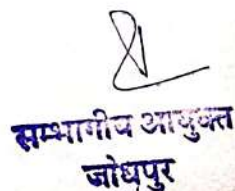 सम्भागीय आयुक्त
जोधपुर